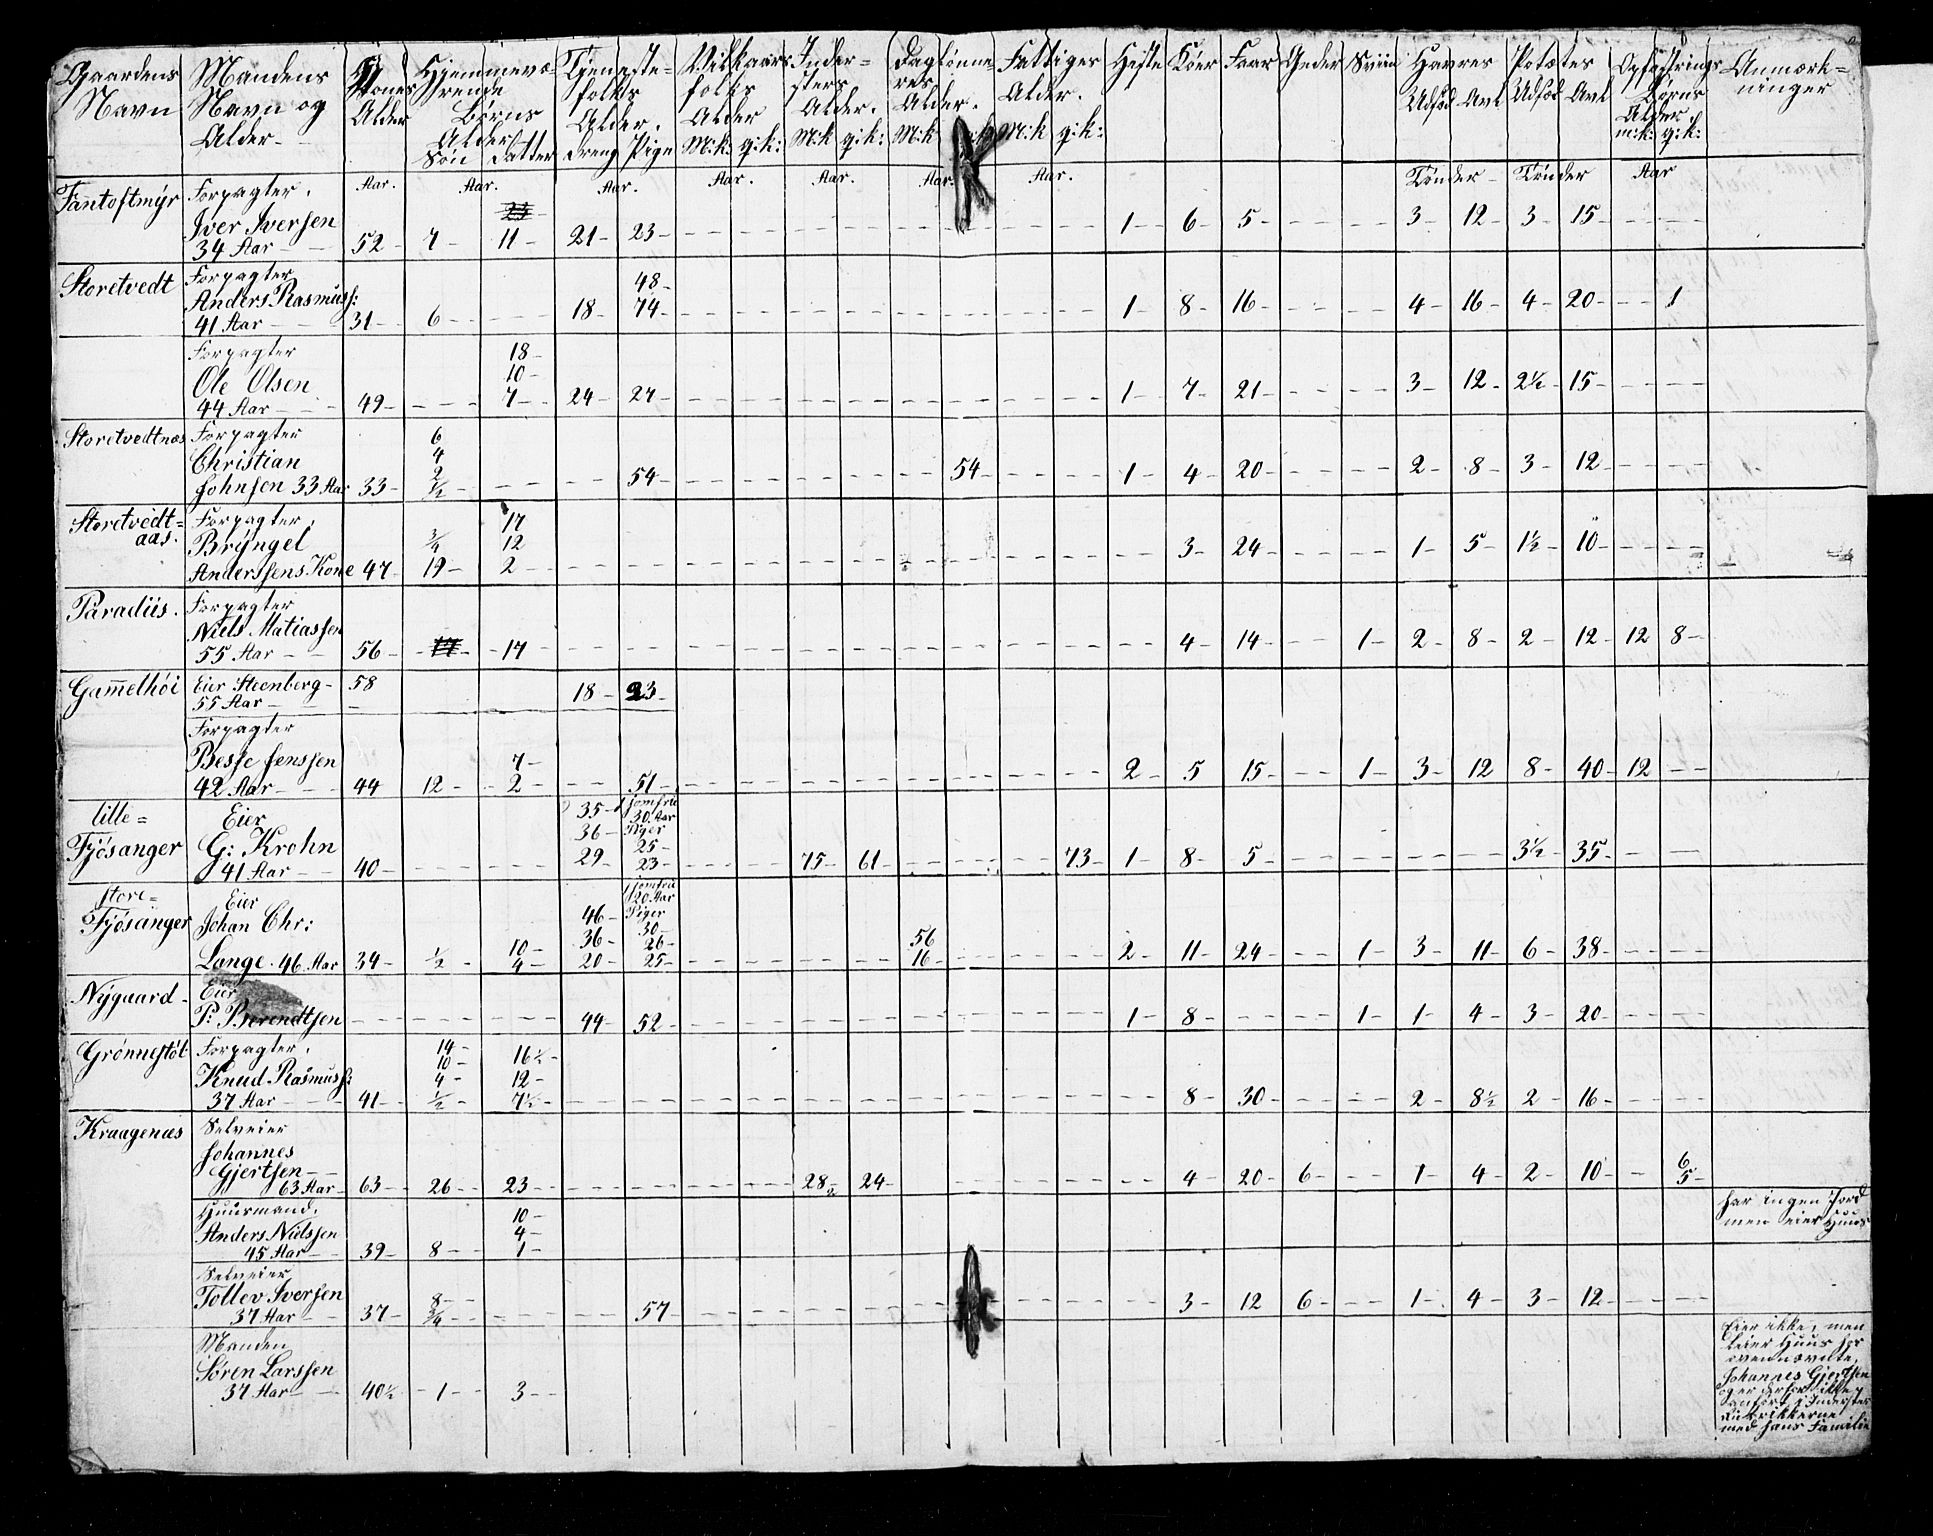 Gaardens Navn | Mandens Navn og Alder | Kones Alder | Hjemmeværende Børns Alder Søn Datter | Tjeneste-folks Alder. Dreng Pige | Vilkaars folks Alder M:k: q:k: | Inder-sters Alder. M:k q:k: | Daglønne-res Alder. M:k q:k | Fattiges Alder. M:k q:k: | Heste | Køer | Faar | Gjeder | Sviin | Havres Udsæd Avl | Potætes Udsæd Avl | Opfostrings Børns Alder m:k: q:k: | Anmærk-ninger
Aar. Aar. Aar. Aar. Aar. Aar. Aar. Tønder Tønder Aar
Fantoftmÿr Forpagter.
23
Iver Iversen 1 6 5 3 12 3 15
34 Aar 52 7 11 21 23
Storetvedt Forpagter 48
Anders Rasmuss: 1 8 16 4 16 4 20 1
41 Aar 31 6 18 74
Forpagter 18
Ole Olsen 10 1 7 21 3 12 2½ 15
44 Aar 49 7 24 27
Storetvedtnæs Forpagter 6
Christian 4 54 1 4 20 2 8 3 12
2
Johnsen 33 Aar 33 ½ 54
Storetvedt= Forpagter. 17
aas. Brÿngel ¾ 12 3 24 1 5 1½ 10
Anderssens Kone 47 19 2
Paradiis. Forpagter
Niels Matiassen 4 14 1 2 8 2 12 12 8
55 Aar 56 17 17
Gammelhöi Eier Steenberg 58 18 23
55 Aar
Forpagter
Besse Jenssen 7 2 5 15 1 3 12 8 40 12
42 Aar 44 12 2 51
lille= Eier 35 Jomfru 30 Aar
Fjösanger G: Krohn 36 Piger 25
41 Aar 40 29 23 75 61 73 1 8 5 3½ 35
store= Eier Jomfru 20 Aar
Fjösanger Johan Chr: 46 Piger 30
10 36 26 56
Lange. 46 Aar 34 ½ 4 20 25 16 2 11 24 1 3 11 6 38
Nÿgaard Eier
P: Berendtsen 44 52 1 8 1 1 4 3 20
Grønnestöl Forpagter. 14 16½
10
Knud Rasmuss: 4 12
37 Aar 41 ½ 7½ 8 30 2 8½ 2 16
Kraagenæs Selveier
Johannes
Gjertsen 4 20 6 1 4 2 10 6 5
63 Aar 63 26 23 28 2 24
Huusmand. 10 har ingen Jord
Anders Nielssen 4 men eier Huus
45 Aar 39 8 1
Selveier
Tollev Iversen 8 3 12 6 1 4 3 12
37 Aar 37 ¾ 57
Manden Eier ikke, men
Søren Larssen leier Huus hos
37 Aar 40½ 1 3 ovennævnte,
Johannes Gjertsen
og er derfor ikke
anført i Inderster
Rubrikkerne
med hans Familie